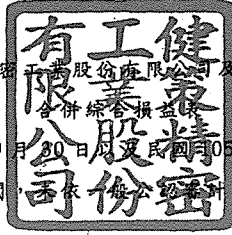 健策精密
工業股份
有限公司
密工業股份有限公司及
合併綜合損益表
月 30 日以及民國 105
依一般公認 計